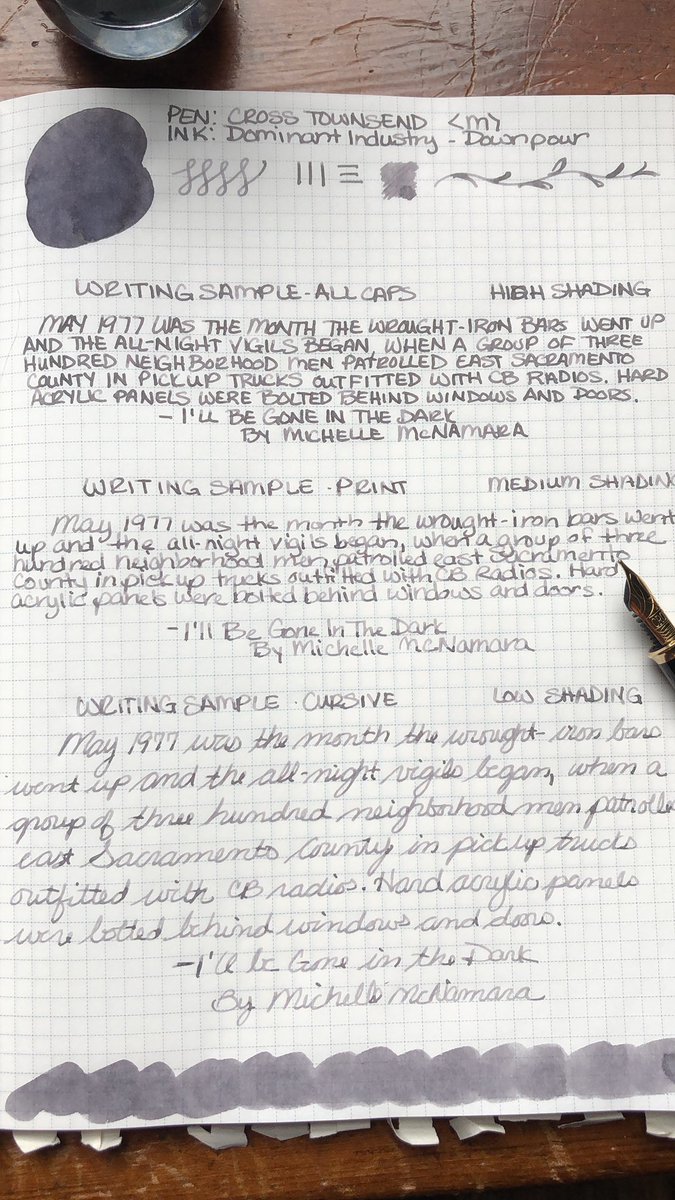 PEN: CROSS TOWNSEND <M>
INK: Dominant Industry - Downpour
WRITING SAMPLE - ALL CAPS HIGH SHADING
MAY 1977 WAS THE MONTH THE WROUGHT-IRON BARS WENT UP
AND THE ALL-NIGHT VIGILS BEGAN, WHEN A GROUP OF THREE
HUNDRED NEIGHBORHOOD MEN PATROLLED EAST SACRAMENTO
COUNTY IN PICKUP TRUCKS OUTFITTED WITH CB RADIOS. HARD
ACRYLIC PANELS WERE BOLTED BEHIND WINDOWS AND DOORS.
- I'LL BE GONE IN THE DARK
BY MICHELLE McNAMARA
WRITING SAMPLE - PRINT MEDIUM SHADING
May 1977 was the month the wrought-iron bars went
up and the all-night vigils began, when a group of three
hundred neighborhood men patrolled east Sacramento
County in pickup trucks outfitted with CB Radios. Hard
acrylic panels were bolted behind windows and doors.
- I'll Be Gone In The Dark
By Michelle McNamara
WRITING SAMPLE - CURSIVE LOW SHADING
May 1977 was the month the wrought-iron bars
went up and the all-night vigils began, when a
group of three hundred neighborhood men patrolle
east Sacramento County in pickup trucks
outfitted with CB radios. Hard acrylic panels
were bolted behind windows and doors.
- I'll be Gone in the Dark
By Michelle McNamara